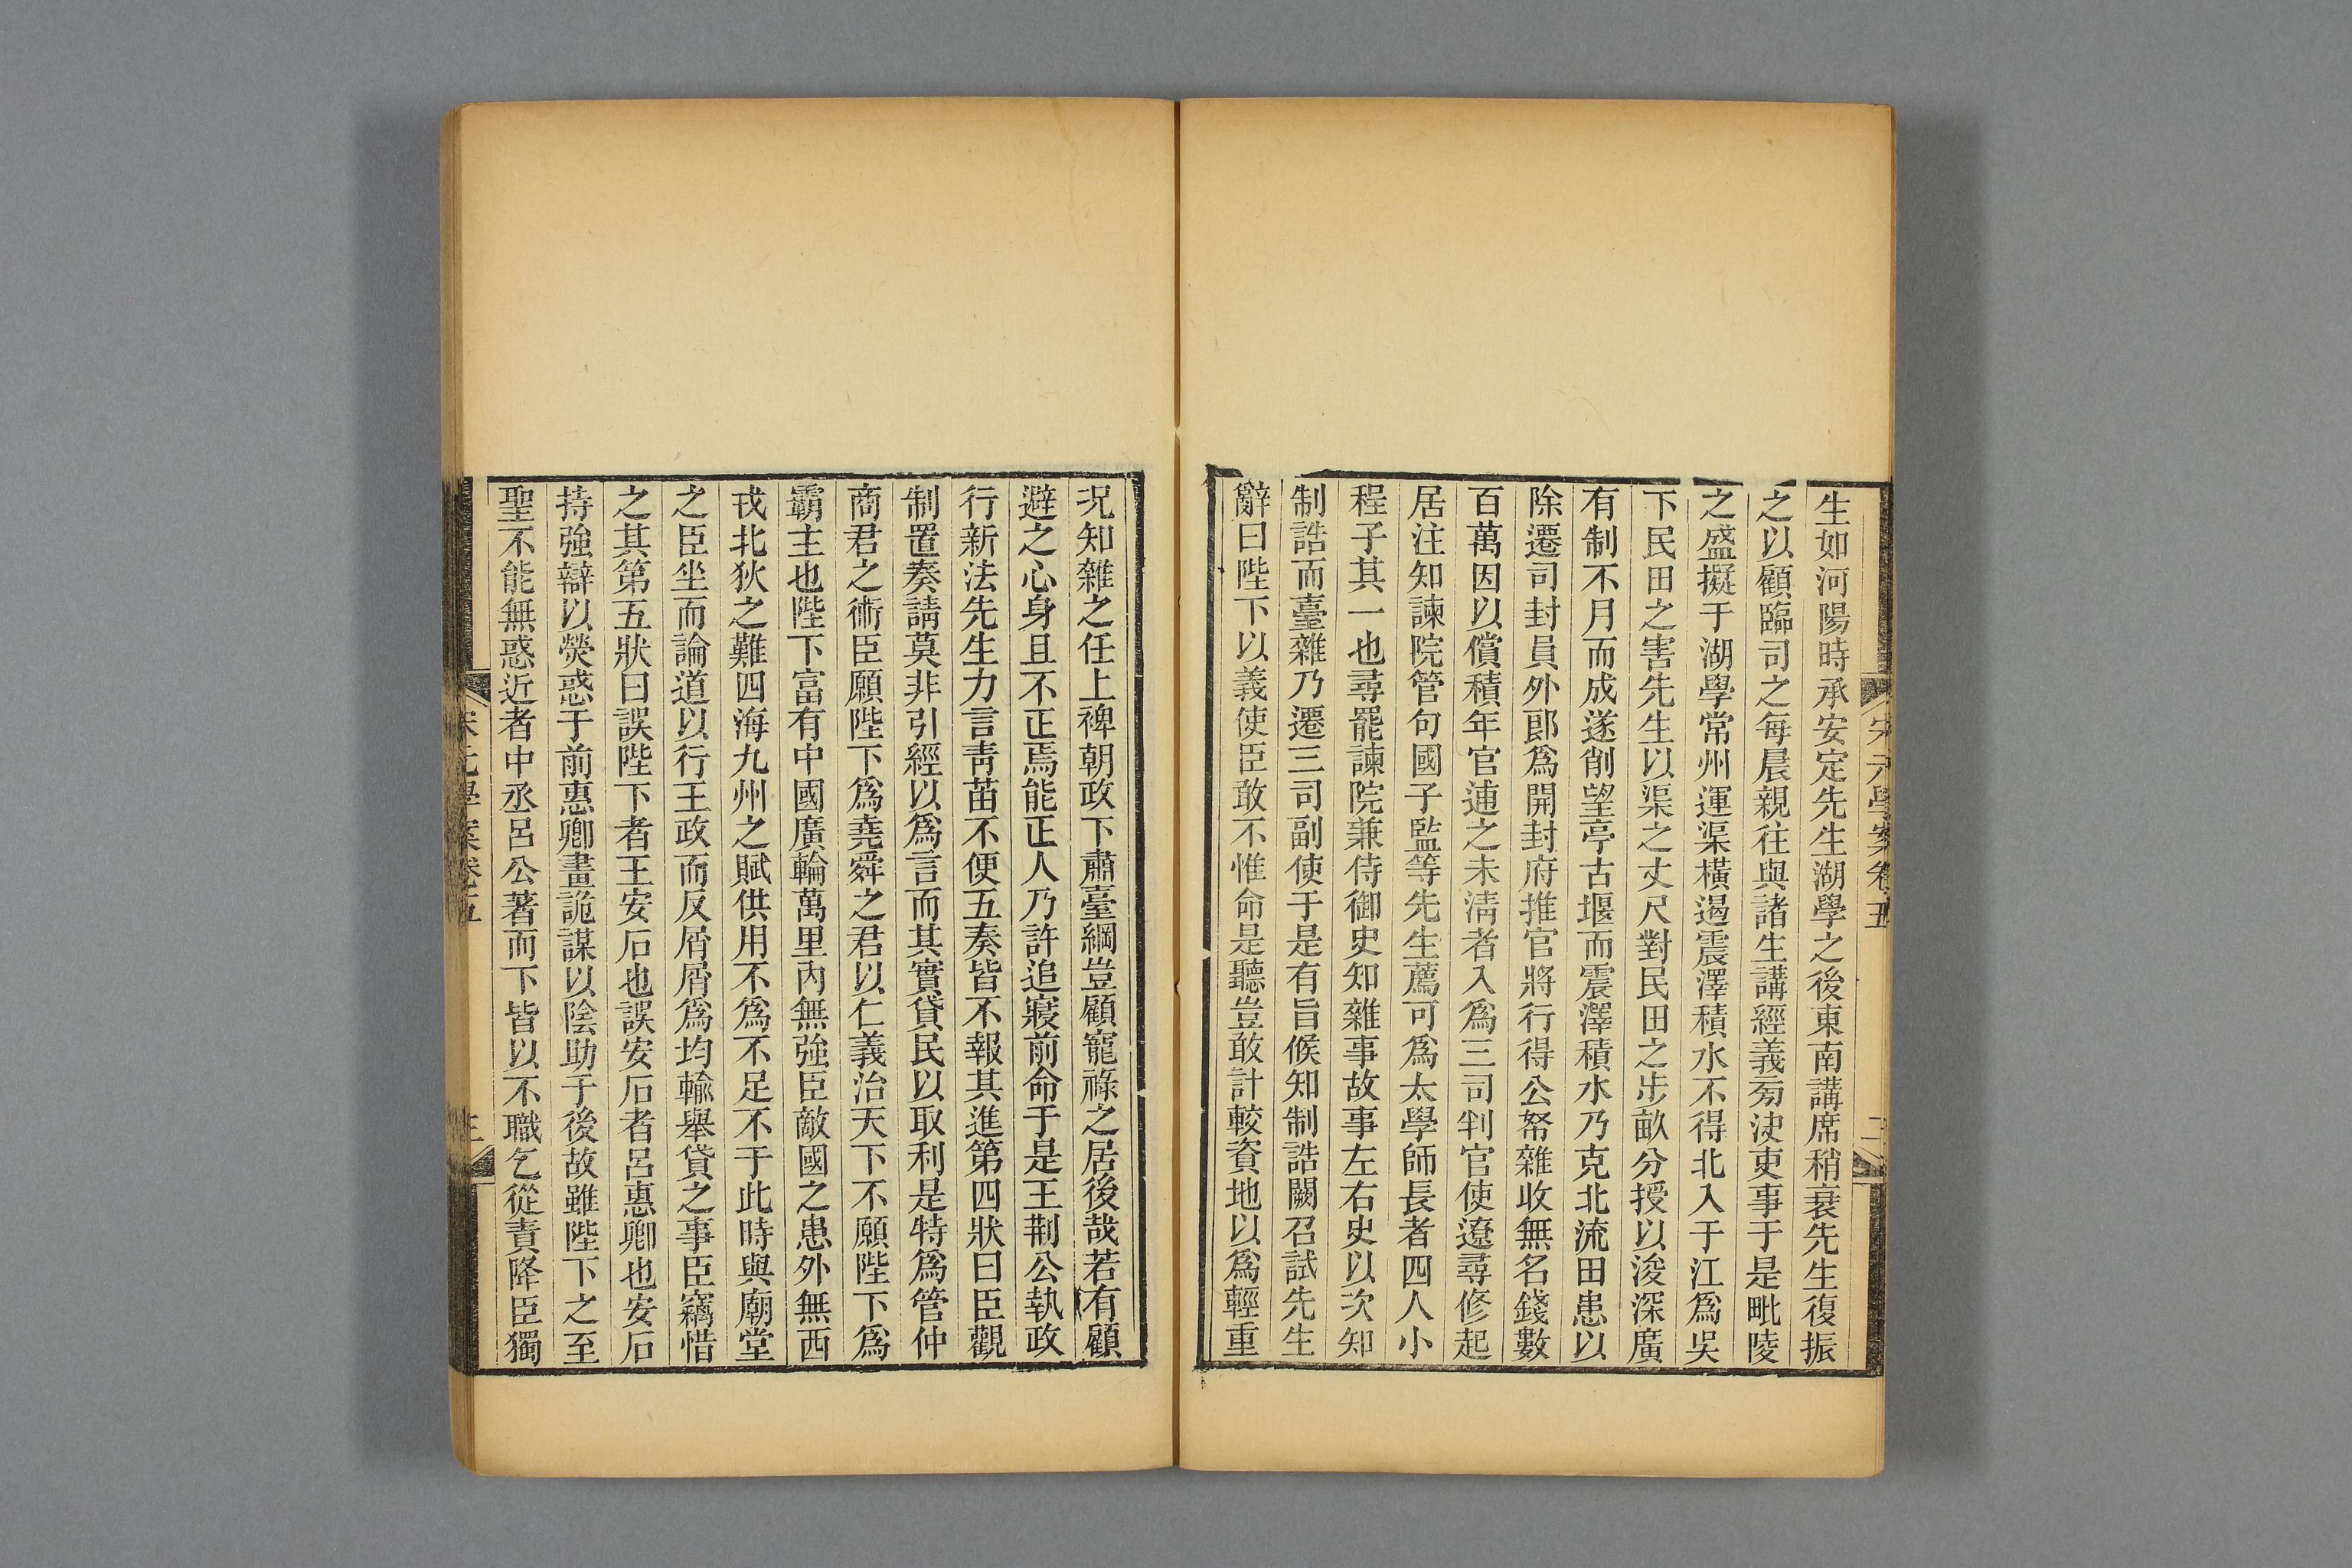 宋元學案卷五
二
生如河陽時承安定先生湖學之後東南講席稍衰先生復振
之以顧臨司之每晨親往與諸生講經義旁決吏事于是毗陵
之盛擬于湖學常州運渠橫遏震澤積水不得北入于江爲吳
下民田之害先生以渠之丈尺對民田之步畝分授以浚深廣
有制不月而成遂削望亭古堰而震澤積水乃克北流田患以
除遷司封員外郎爲開封府推官將行得公帑雜收無名錢數
百萬因以償積年官逋之未清者入爲三司判官使遼尋修起
居注知諫院管句國子監等先生薦可爲太學師長者四人小
程子其一也尋罷諫院兼侍御史知雜事故事左右史以次知
制誥而臺雜乃遷三司副使于是有旨候知制誥闕召試先生
辭曰陛下以義使臣敢不惟命是聽豈敢計較資地以爲輕重
況知雜之任上裨朝政下肅臺綱豈顧寵祿之居後哉若有顧
避之心身且不正焉能正人乃許追寢前命于是王荆公執政
行新法先生力言靑苗不便五奏皆不報其進第四狀曰臣觀
制置奏請莫非引經以爲言而其實貸民以取利是特爲管仲
商君之術臣願陛下爲堯舜之君以仁義治天下不願陛下爲
霸主也陛下富有中國廣輪萬里內無強臣敵國之患外無西
戎北狄之難四海九州之賦供用不爲不足不于此時與廟堂
之臣坐而論道以行王政而反屑屑爲均輸舉貸之事臣竊惜
之其第五狀曰誤陛下者王安石也誤安石者呂惠卿也安石
持強辯以熒惑于前惠卿畫詭謀以陰助于後故雖陛下之至
聖不能無惑近者中丞呂公著而下皆以不職乞從責降臣獨
宋元學案卷五
三